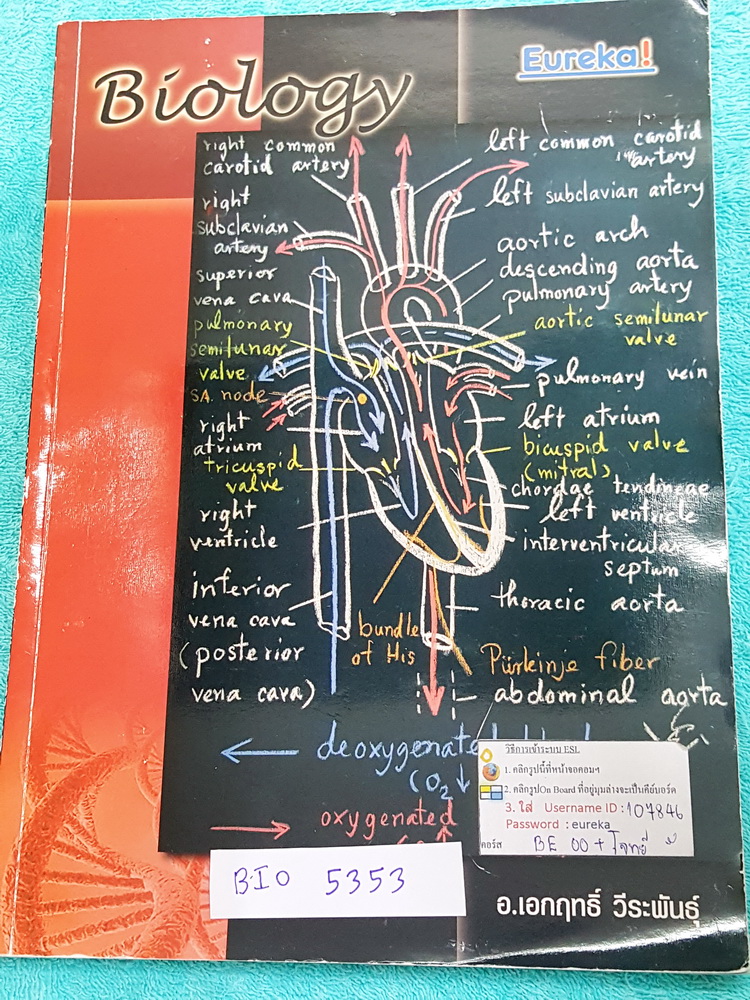 Biology
Eureka!
right common
carotid artery
right
subclavian
artery
superior
vena cava
pulmonary
semilunar
valve
SA. node
right
atrium
tricuspid
valve
right
ventricle
inferior
vena cava
(posterior
vena cava)
left common carotid
artery
left subclavian artery
aortic arch
descending aorta
pulmonary artery
aortic semilunar
valve
pulmonary vein
left atrium
bicuspid valve
(mitral)
chordae tendineae
left ventricle
interventricular
septum
thoracic aorta
bundle
of His
Pürkinje fiber
abdominal aorta
deoxygenate
(O2↓
oxygenated
วิธีการเข้าระบบ ESL
1. คลิกรูปนี้ที่หน้าจอคอมฯ
2. คลิกรูปOn Board ที่อยู่มุมล่างจะเป็นคีย์บอร์ด
3. ใส่ Username ID : 107846
Password : eureka
คอร์ส BE 00 + โจทย์
BIO 5353
อ.เอกฤทธิ์ วีระพันธุ์